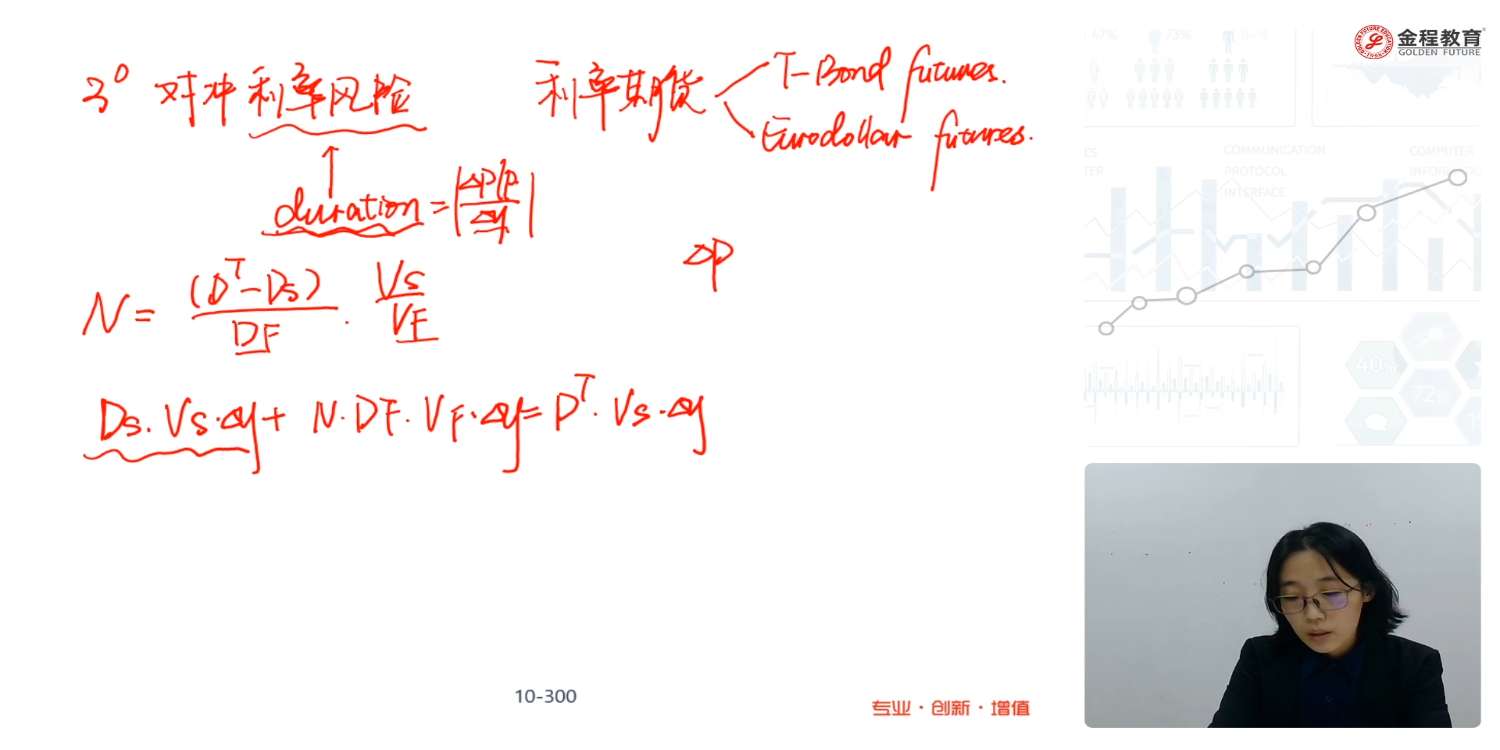 3° 对冲利率风险 利率期货 T-Bond futures.
Eurodollar futures.
duration = |ΔP/P / Δy|
ΔP
N = (D^T - Ds) / DF · Vs / VF
Ds · Vs · Δy + N · DF · VF · Δy = D^T · Vs · Δy
10-300
专业 · 创新 · 增值
金程教育
GOLDEN FUTURE
COMMUNICATION
PROTOCOL
INTERFACE
COMPUTER
40%
72%